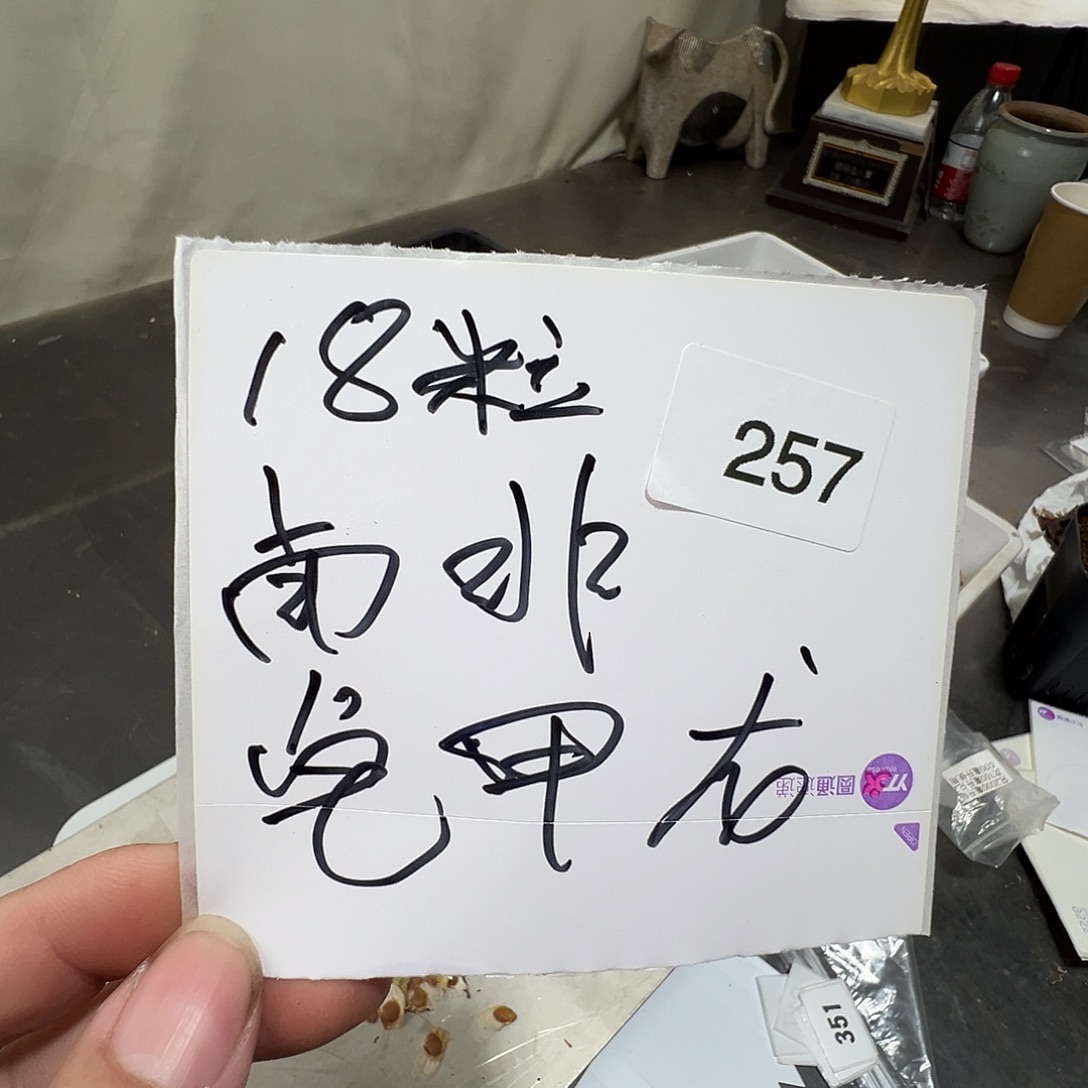 18粒
257
南非
龟甲龙
圆通速递
OPEN
351